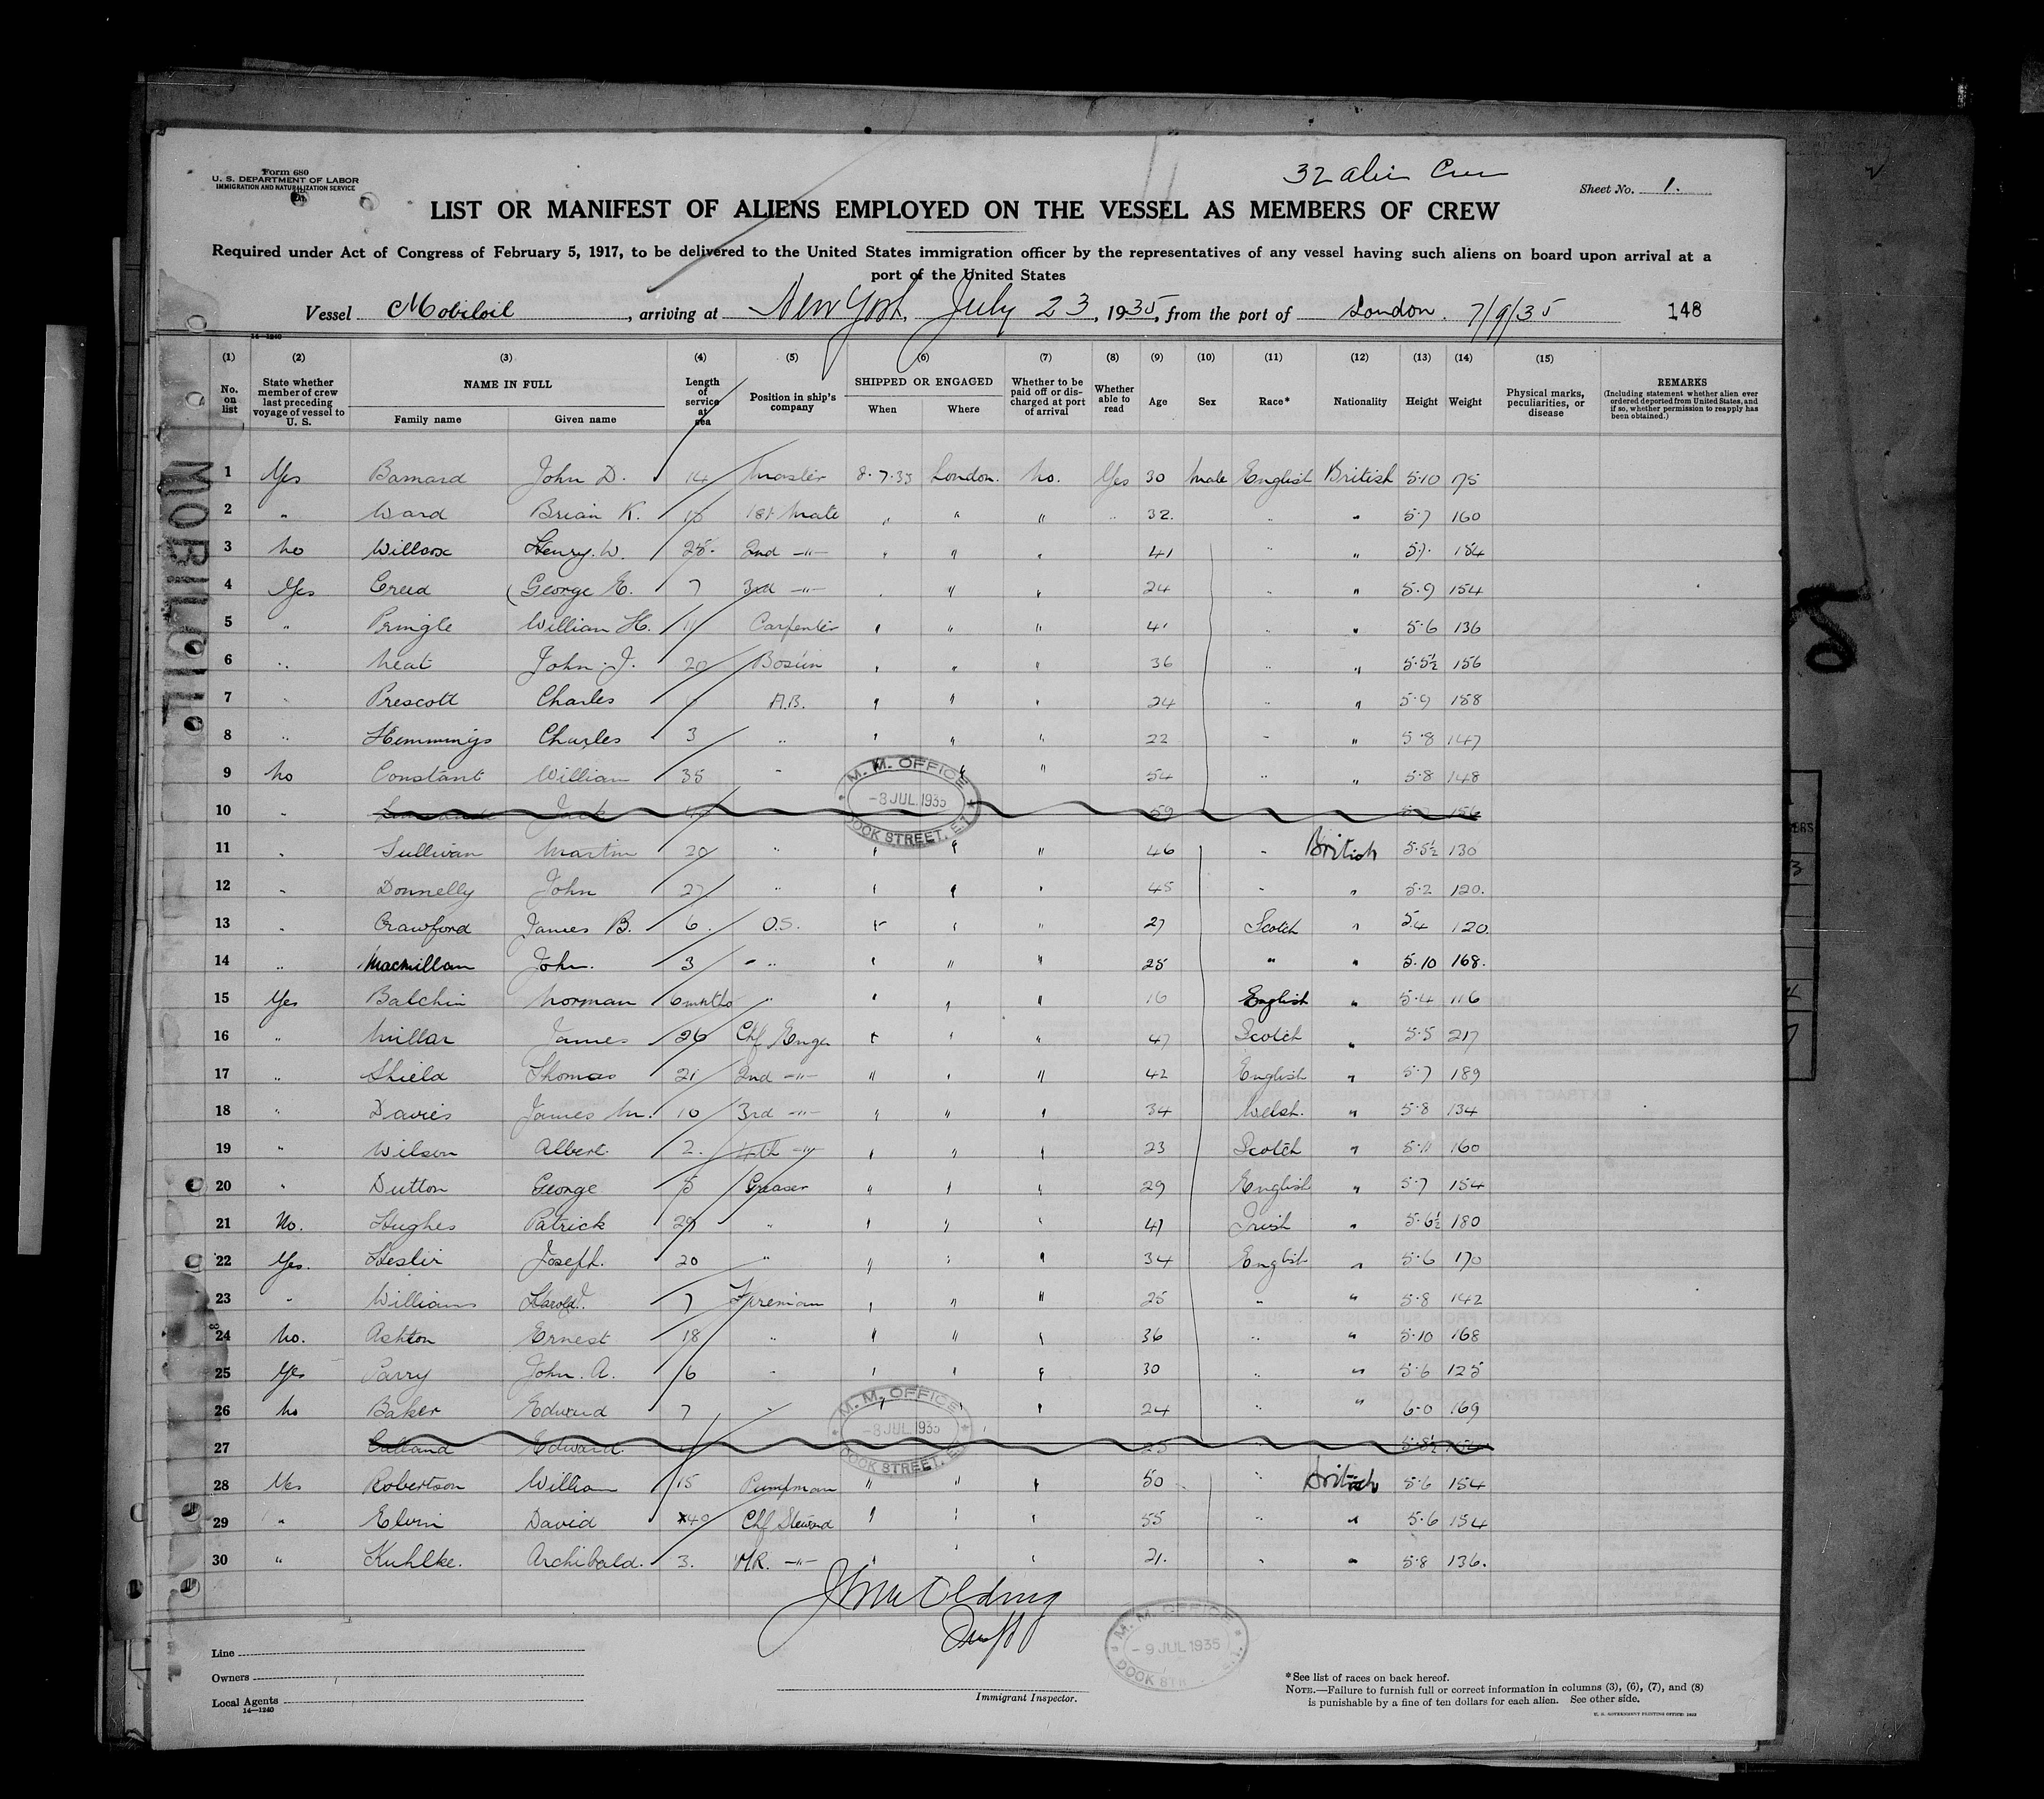 32 alien Crew
Form 680
U. S. DEPARTMENT OF LABOR
IMMIGRATION AND NATURALIZATION SERVICE
Sheet No. 1.
LIST OR MANIFEST OF ALIENS EMPLOYED ON THE VESSEL AS MEMBERS OF CREW
Required under Act of Congress of February 5, 1917, to be delivered to the United States immigration officer by the representatives of any vessel having such aliens on board upon arrival at a
port of the United States
Vessel Mobiloil, arriving at New York, July 23, 1935, from the port of London. 7/9/35 148
14—1240
(1) (2) (3) (4) (5) (6) (7) (8) (9) (10) (11) (12) (13) (14) (15)
No. on list State whether member of crew last preceding voyage of vessel to U. S. NAME IN FULL Family name Given name Length of service at sea Position in ship's company SHIPPED OR ENGAGED When Where Whether to be paid off or discharged at port of arrival Whether able to read Age Sex Race* Nationality Height Weight Physical marks, peculiarities, or disease REMARKS (Including statement whether alien ever ordered deported from United States, and if so, whether permission to reapply has been obtained.)
MOBILOIL
1 Yes Barnard John D. 14 Master 8.7.35 London. No. Yes 30 Male English British 5.10 175
2 " Ward Brian K. 1st Mate " " " " 32. " " 5.7 160
3 No Willcox Henry. W. 25. 2nd -"- " " " 41 " " 5.7. 184
4 Yes Creed George E. 7 3rd -"- " " " 24 " " 5.9 154
5 " Pringle William H. 11 Carpenter " " " 41 " " 5.6 136
6 " Neat John. J. 20 Bosun " " " 36 " " 5.5½ 156
7 " Prescott Charles A.B. " " " 24 " " 5.9 158
8 " Hemmings Charles 3 " " " " 22 " " 5.8 147
9 No Constant William 35 " " " 54 " " 5.8 148
10 " Jack 59 156
11 " Sullivan Martin 20 " " " " 46 " British 5.5½ 130
12 " Donnelly John 27 " " " " 45 " " 5.2 120.
13 " Crawford James B. 6. O.S. " " " 27 Scotch " 5.4 120.
14 " Macmillan John. 3 " " " " 25 " " 5.10 168.
15 Yes Balchin Norman 6 mnths " " " " 16 English " 5.4 116
16 " Millar James 26 Chf Enger " " " 47 Scotch " 5.5 217
17 " Shield Thomas 21 2nd -"- " " " 42 English " 5.7 189
18 " Davies James M. 10 3rd -"- " " " 34 Welsh. " 5.8 134
19 " Wilson Albert. 2. 4th -"- " " " 23 Scotch " 5.11 160
20 " Dutton George 5 Greaser " " " 29 English " 5.7 154
21 No. Hughes Patrick 29 " " " " 41 Irish " 5.6½ 180
22 Yes. Heslir Joseph. 20 " " " " 34 English " 5.6 170
23 " Williams Harold J. 7 Fireman " " " 25 " " 5.8 142
24 No. Ashton Ernest 18 " " " " 36 " " 5.10 168
25 Yes Parry John. A. 6 " " " " 30 " " 5.6 125
26 No Baker Edward 7 " " " " 24 " " 6.0 169
27 Calland Edward 25 5.8½
28 Yes Robertson William 15 Pumpman " " " 50 " British 5.6 154
29 " Elvin David 40 Chf Steward " " " 55 " " 5.6 154
30 " Kuhlke. Archibald. 3. M.R. -"- " " " 21. " " 5.8 136.
M. M. OFFICE
-8 JUL 1935
DOCK STREET, E.1.
M. M. OFFICE
-8 JUL 1935
DOCK STREET, E.1.
M. M. OFFICE
-9 JUL 1935
Line
Owners
Local Agents
14—1240
Immigrant Inspector.
*See list of races on back hereof.
NOTE.—Failure to furnish full or correct information in columns (3), (6), (7), and (8)
is punishable by a fine of ten dollars for each alien. See other side.